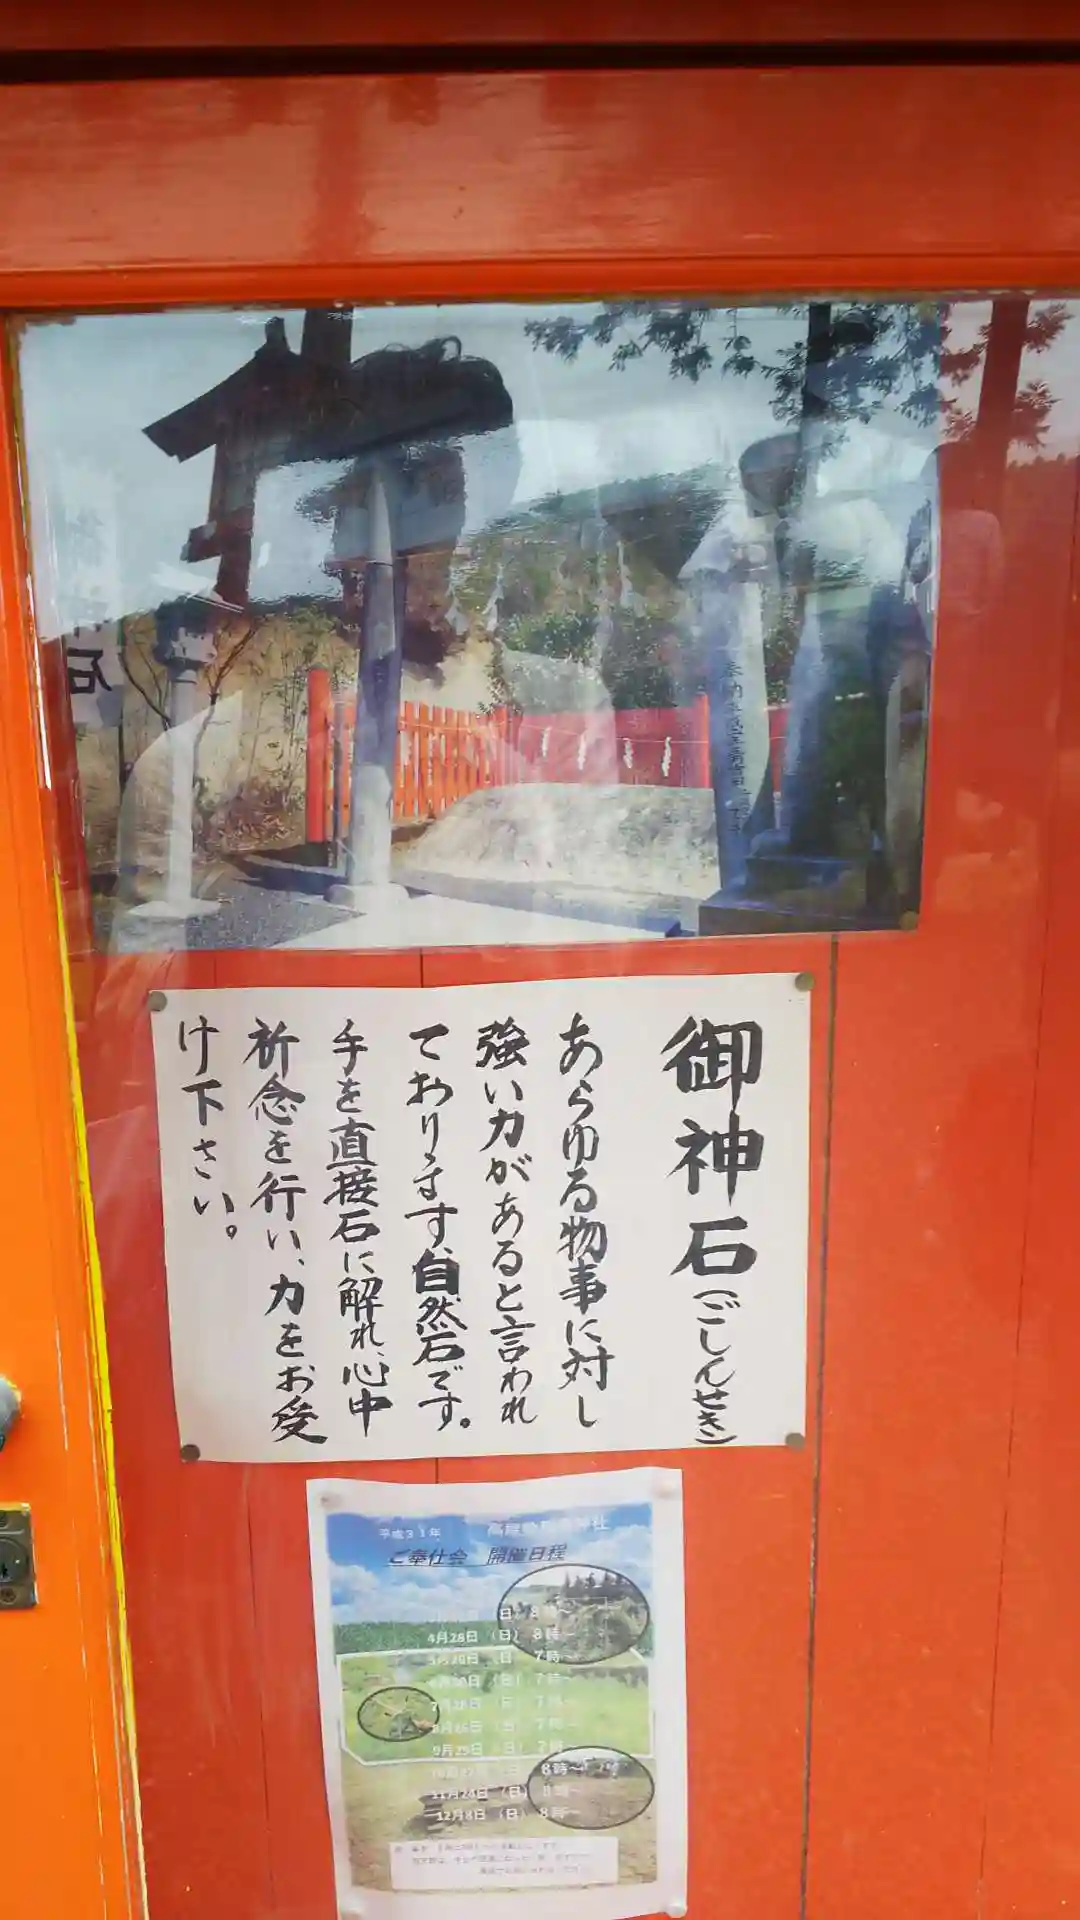 石
奉納
御神石(ごしんせき)
あらゆる物事に対し
強い力があると言われ
ております、自然石です。
手を直接石に解れ、心中
祈念を行い、力をお受
け下さい。
平成31年
ご奉仕会 開催日程
(日) 8時~
4月28日 (日) 8時~
(日) 7時~
(日) 7時~
7月28日 (日) 7時~
8月25日 (日) 7時~
9月29日 (日) 7時~
10月27日 (日) 8時~
11月24日 (日) 8時~
12月8日 (日) 8時~